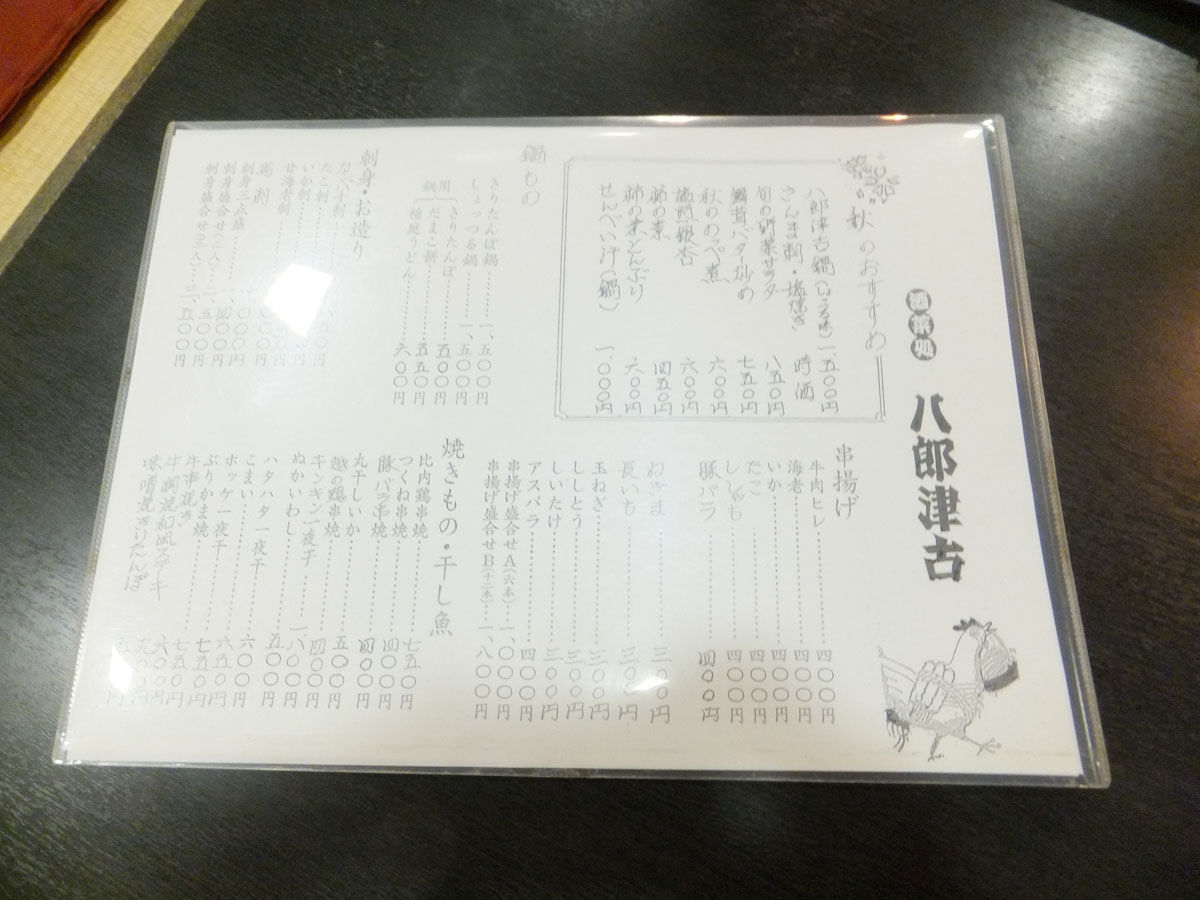 酒菜処
八郎津古
秋のおすすめ
八郎津古鍋（しょうゆ味）一、五〇〇円
さんま刺・塩焼き 時価
旬の野菜サラダ 八五〇円
舞茸バター炒め 七五〇円
秋ののっぺ煮 六〇〇円
塩煎銀杏 六〇〇円
柿の素 四五〇円
柿の葉どんぶり 六〇〇円
せんべい汁（鍋） 一、〇〇〇円
鍋もの
きりたんぽ鍋 一、五〇〇円
しょっつる鍋 一、五〇〇円
鍋用
きりたんぽ 五〇〇円
だまこ餅 五五〇円
稲庭うどん 六〇〇円
刺身・お造り
たこ刺
いか刺
甘海老刺
馬刺
刺身三点盛 一、〇〇〇円
刺身盛合せ（一人） 一、四〇〇円
刺身盛合せ（二人） 二、五〇〇円
串揚げ
牛肉ヒレ 四〇〇円
海老 四〇〇円
いか 四〇〇円
たこ 四〇〇円
ししゃも 四〇〇円
豚バラ 四〇〇円
ねぎま 三〇〇円
長いも 三〇〇円
玉ねぎ 三〇〇円
ししとう 三〇〇円
しいたけ 三〇〇円
アスパラ 四〇〇円
串揚げ盛合せA（六本） 一、〇〇〇円
串揚げ盛合せB（十二本） 一、八〇〇円
焼きもの・干し魚
比内鶏串焼 七五〇円
つくね串焼 四〇〇円
豚バラ串焼 四〇〇円
丸干しいか
越の鶏串焼 五〇〇円
キンキン一夜干
ぬかいわし
ハタハタ一夜干
こまい 六〇〇円
ホッケ一夜干 六五〇円
ぶりかま焼 七五〇円
牛串焼き 七五〇円
牛網焼和風ステーキ
味噌焼きりたんぽ